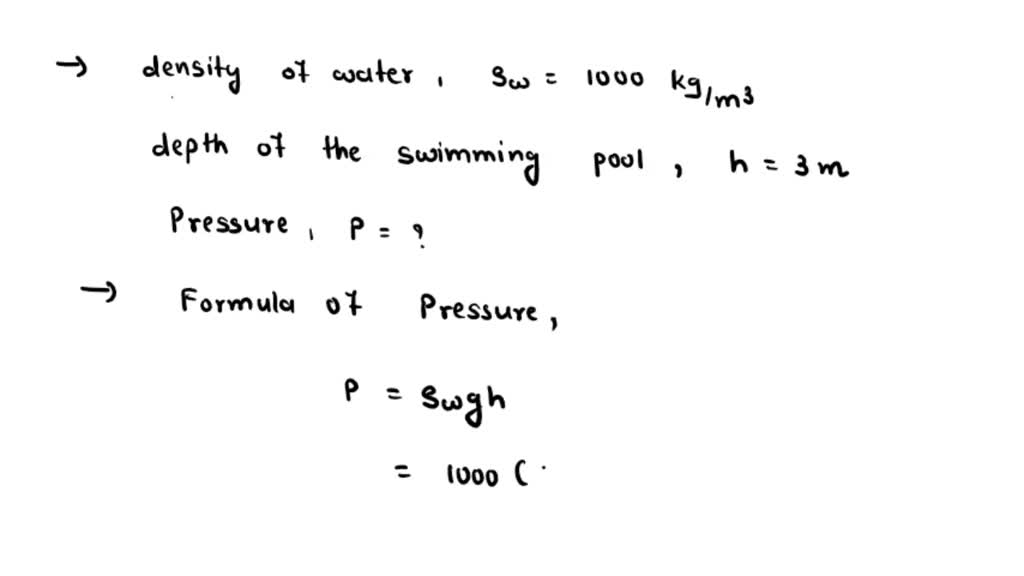 → density of water, Sw = 1000 kg/m3
depth of the swimming pool, h = 3 m
Pressure, P = ?
→ Formula of Pressure,
P = Swgh
= 1000 (